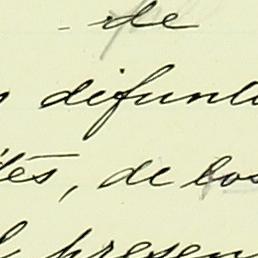 de
difunto
tes, de los
l presen